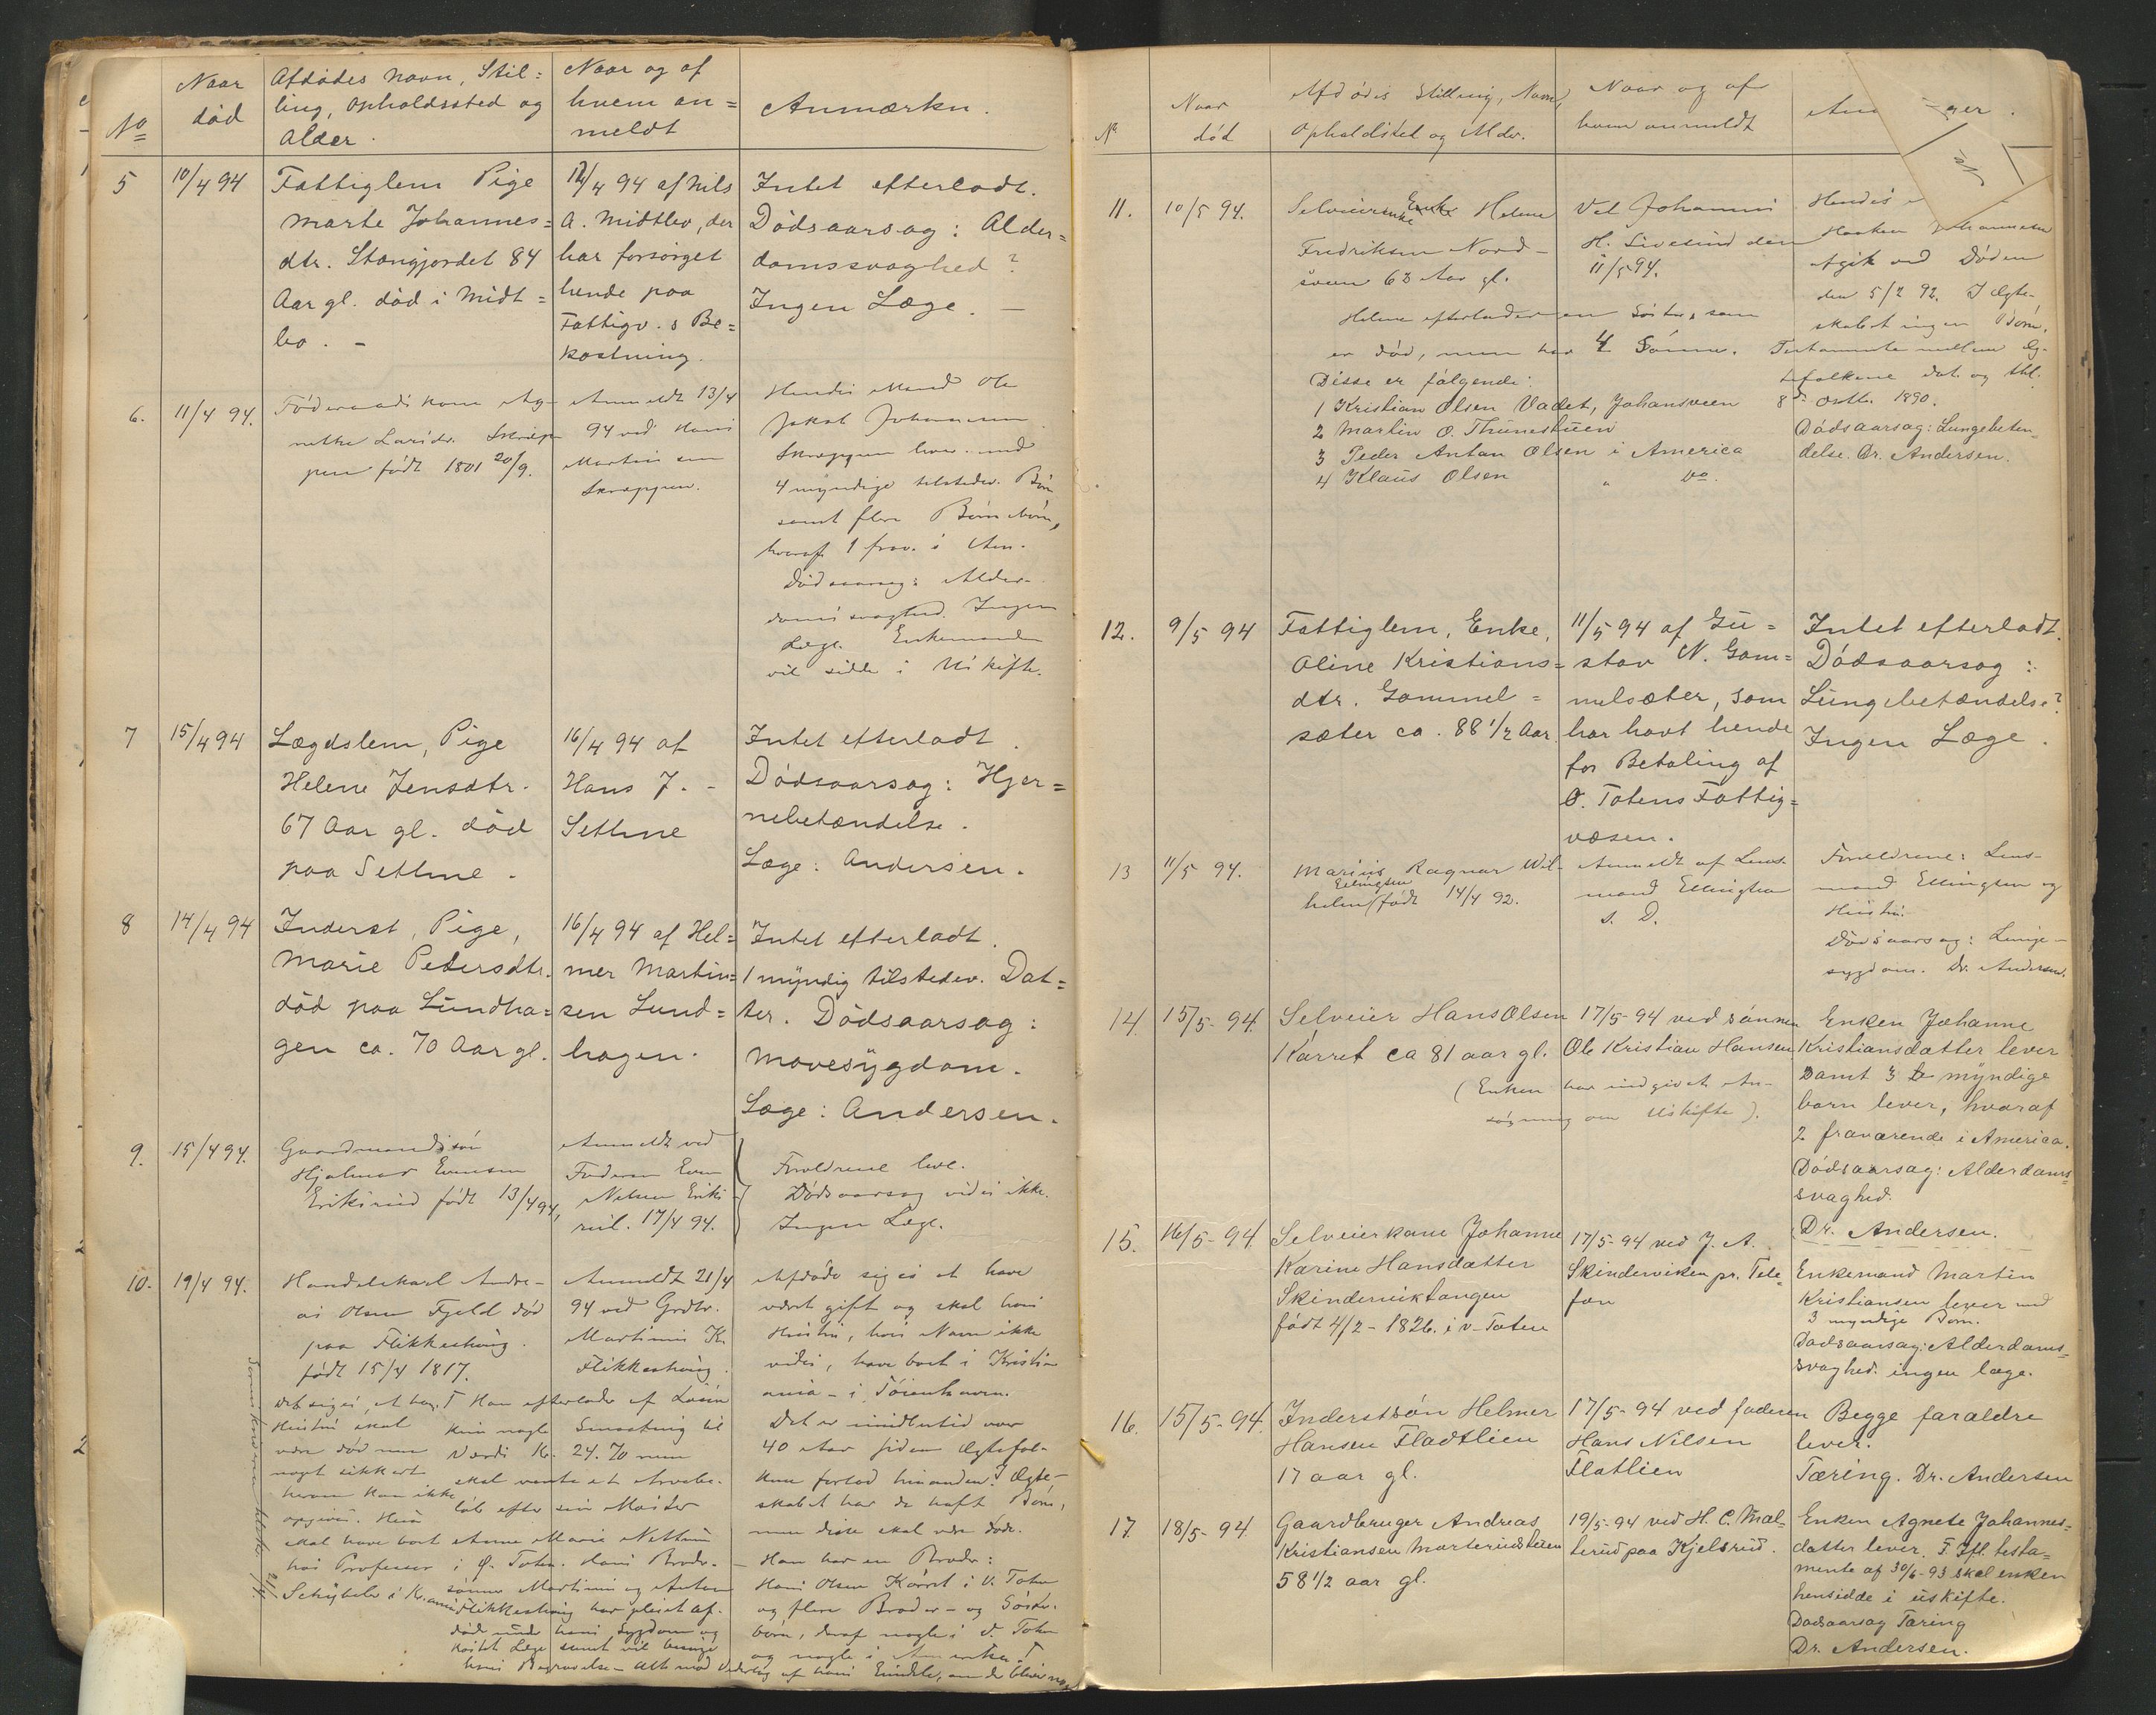 No
Naar
død
Afdødes Navn, Stil=
ling, Opholdssted og
Alder.
Naar og af
hvem an=
meldt
Anmærkn.
5
10/4 94
Fattiglem Pige
Marte Johannes=
dtr. Stangjordet 84
Aar gl. død i Midt=
bo. -
12/4 94 af Nils
A. Midtbo, der
har forsørget
hende paa
Fattigv.s Be=
kostning.
Intet efterladt.
Dødsaarsag: Alder=
domssvaghed?
Ingen Læge. -
6.
11/4 94.
Føderaadskone Ag-
nethe Larsdr. Skræp-
pen født 1801 20/9.
Anmeldt 13/4
94 ved Hans
Martinsen
Skræppen.
Hendes Mand Ole
Jakob Johannesen
Skræppen lever med
4 myndige tilstedev. Børn
samt flere Børnebørn,
hvoraf 1 frav. i Am.
Dødsaarsag: Alder-
domssvaghed. Ingen
Læge. Enkemanden
vil sidde i Uskifte.
7
15/4 94
Lægdslem, Pige
Helene Jensdtr.
67 Aar gl. død
paa Sethne.
16/4 94 af
Hans J. -
Sethne
Intet efterladt.
Dødsaarsag: Hjer=
nebetændelse.
Læge: Andersen.
8
14/4 94
Inderst, Pige,
Marie Petersdtr.
død paa Lundha=
gen ca. 70 Aar gl.
16/4 94 af Hel=
mer Martin=
sen Lund=
hagen.
Intet efterladt.
1 myndig tilstedev. Dat=
ter. Dødsaarsag:
Mavesygdom.
Læge: Andersen.
9.
15/4 94.
Gaardmandssøn
Hjalmar Evensen
Eriksrud født 13/4 94,
Anmeldt ved
Faderen Even
Nelsen Eriks-
rud. 17/4 94.
Forældrene leve.
Dødsaarsag vides ikke.
Ingen Læge.
10.
19/4 94.
Handelskarl Andre-
as Olsen Fjeld død
paa Flikkeshaug.
født 15/4 1817.
Anmeldt 21/4
94 ved Grdbr.
Martinus K.
Flikkeshaug.
Afdøde siges at have
været gift og skal hans
Hustru, hvis Navn ikke
vides, have boet i Kristi-
ania - i Tøienhavn.
Det er imidlertid over
40 Aar siden Ægtefol-
kene forlod hinanden. I Ægte-
skabet har de haft Børn,
men disse skal være døde.
- Han har en Broder:
Hans Olsen Kørret i V. Toten
og flere Broder- og Søster-
børn, deraf nogle i V. Toten
og nogle i Amerika.
Det siges, at han
Hustru skal
være død men
noget sikkert
herom kan ikke
opgives. Hun
skal have boet
hos Professor
Schübeler i Kr.ania
Han efterlader af Løsøre
kun nogle Smaating til
Værdi Kr. 24.70 men
skal vente et Arvebe-
løb efter sin Moster
Anne Marie Nettum
i Ø. Toten. Hans Broder-
sønner Martinus og Anton
Flikkeshaug har pleiet af-
død under hans Sygdom og
kostet Læge samt vil besørge
hans Begravelse - Alt mod Vederlag af hans Eiendele, om der bliver noget
No
Naar
død
Afdødes Stilling, Navn,
Opholdsted og Alder.
Naar og af
hvem anmeldt
11.
10/5 94.
Selveierenke Helene
Fredriksen Nord-
sveen 63 Aar gl.
Ved Johannes
H. Livesund den
11/5 94.
Hendes
Haakon Johannesen
afgik ved Døden
den 5/2 92. I Ægte-
skabet ingen Børn.
Testamente mellem Æg-
tefolkene dat. og thl.
8de Oktb. 1890.
Dødsaarsag: Lungebeten-
delse. Dr. Andersen.
Helene efterlader en Søster, som
er død, men har 4 Sønner.
Disse er følgende:
1 Kristian Olsen Vadet, Johansveen
2 Martin O. Thunestuen
3 Peder Anton Olsen i America
4 Klaus Olsen " do.
12.
9/5 94
Fattiglem, Enke,
Oline Kristians=
dtr. Gammel=
sæter ca. 88 1/2 Aar.
11/5 94 af Gu=
stav N. Gam=
melsæter, som
har havt hende
for Betaling af
Ø. Totens Fattig=
væsen.
Intet efterladt.
Dødsaarsag:
Lungebetændelse?
Ingen Læge.
13
11/5 94.
Marius Ragnar Wil-
helm Ellingsen født 14/4 92.
Anmeldt af Lens-
mand Ellingsen
s. D.
Forældrene: Lens-
mand Ellingsen og
Hustru.
Dødsaarsag: Lunge-
sygdom. Dr. Andersen.
14.
15/5-94.
Selveier Hans Olsen
Kørret ca 81 aar gl.
17/5-94 ved sønnen
Ole Kristian Hansen
(Enken har indgivet An-
søgning om Uskifte).
Enken Johanne
Kristiansdatter lever
samt 3 myndige
børn lever, hvoraf
2 fraværende i America.
Dødsaarsag: Alderdoms=
svaghed.
Dr. Andersen.
15.
16/5-94.
Selveierkone Johanne
Karine Hansdatter
Skinderviktangen
født 4/2-1826. i V-Toten
17/5-94 ved J. A.
Skinderviken pr. Tele=
fon
Enkemand Martin
Kristiansen lever med
3 myndige Børn.
Dødsaarsag: Alderdoms=
svaghed. ingen læge.
16.
15/5-94.
Inderstsøn Helmer
Hansen Fladtlien
17 aar gl.
17/5-94 ved faderen
Hans Nilsen
Flatlien
Begge forældre
lever.
Tæring. Dr. Andersen
17.
18/5-94
Gaardbruger Andreas
Kristiansen Marterudsteien
58 1/2 aar gl.
19/5-94 ved H. C. Mal-
terud paa Kjelsrud.
Enken Agnete Johannes=
datter lever. I flg. testa=
mente af 30/6-93 skal enken
hensidde i uskifte.
Dødsaarsag Tæring
Dr. Andersen.